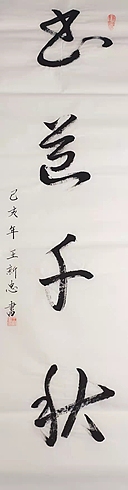 书道千秋
己亥年王新忠書